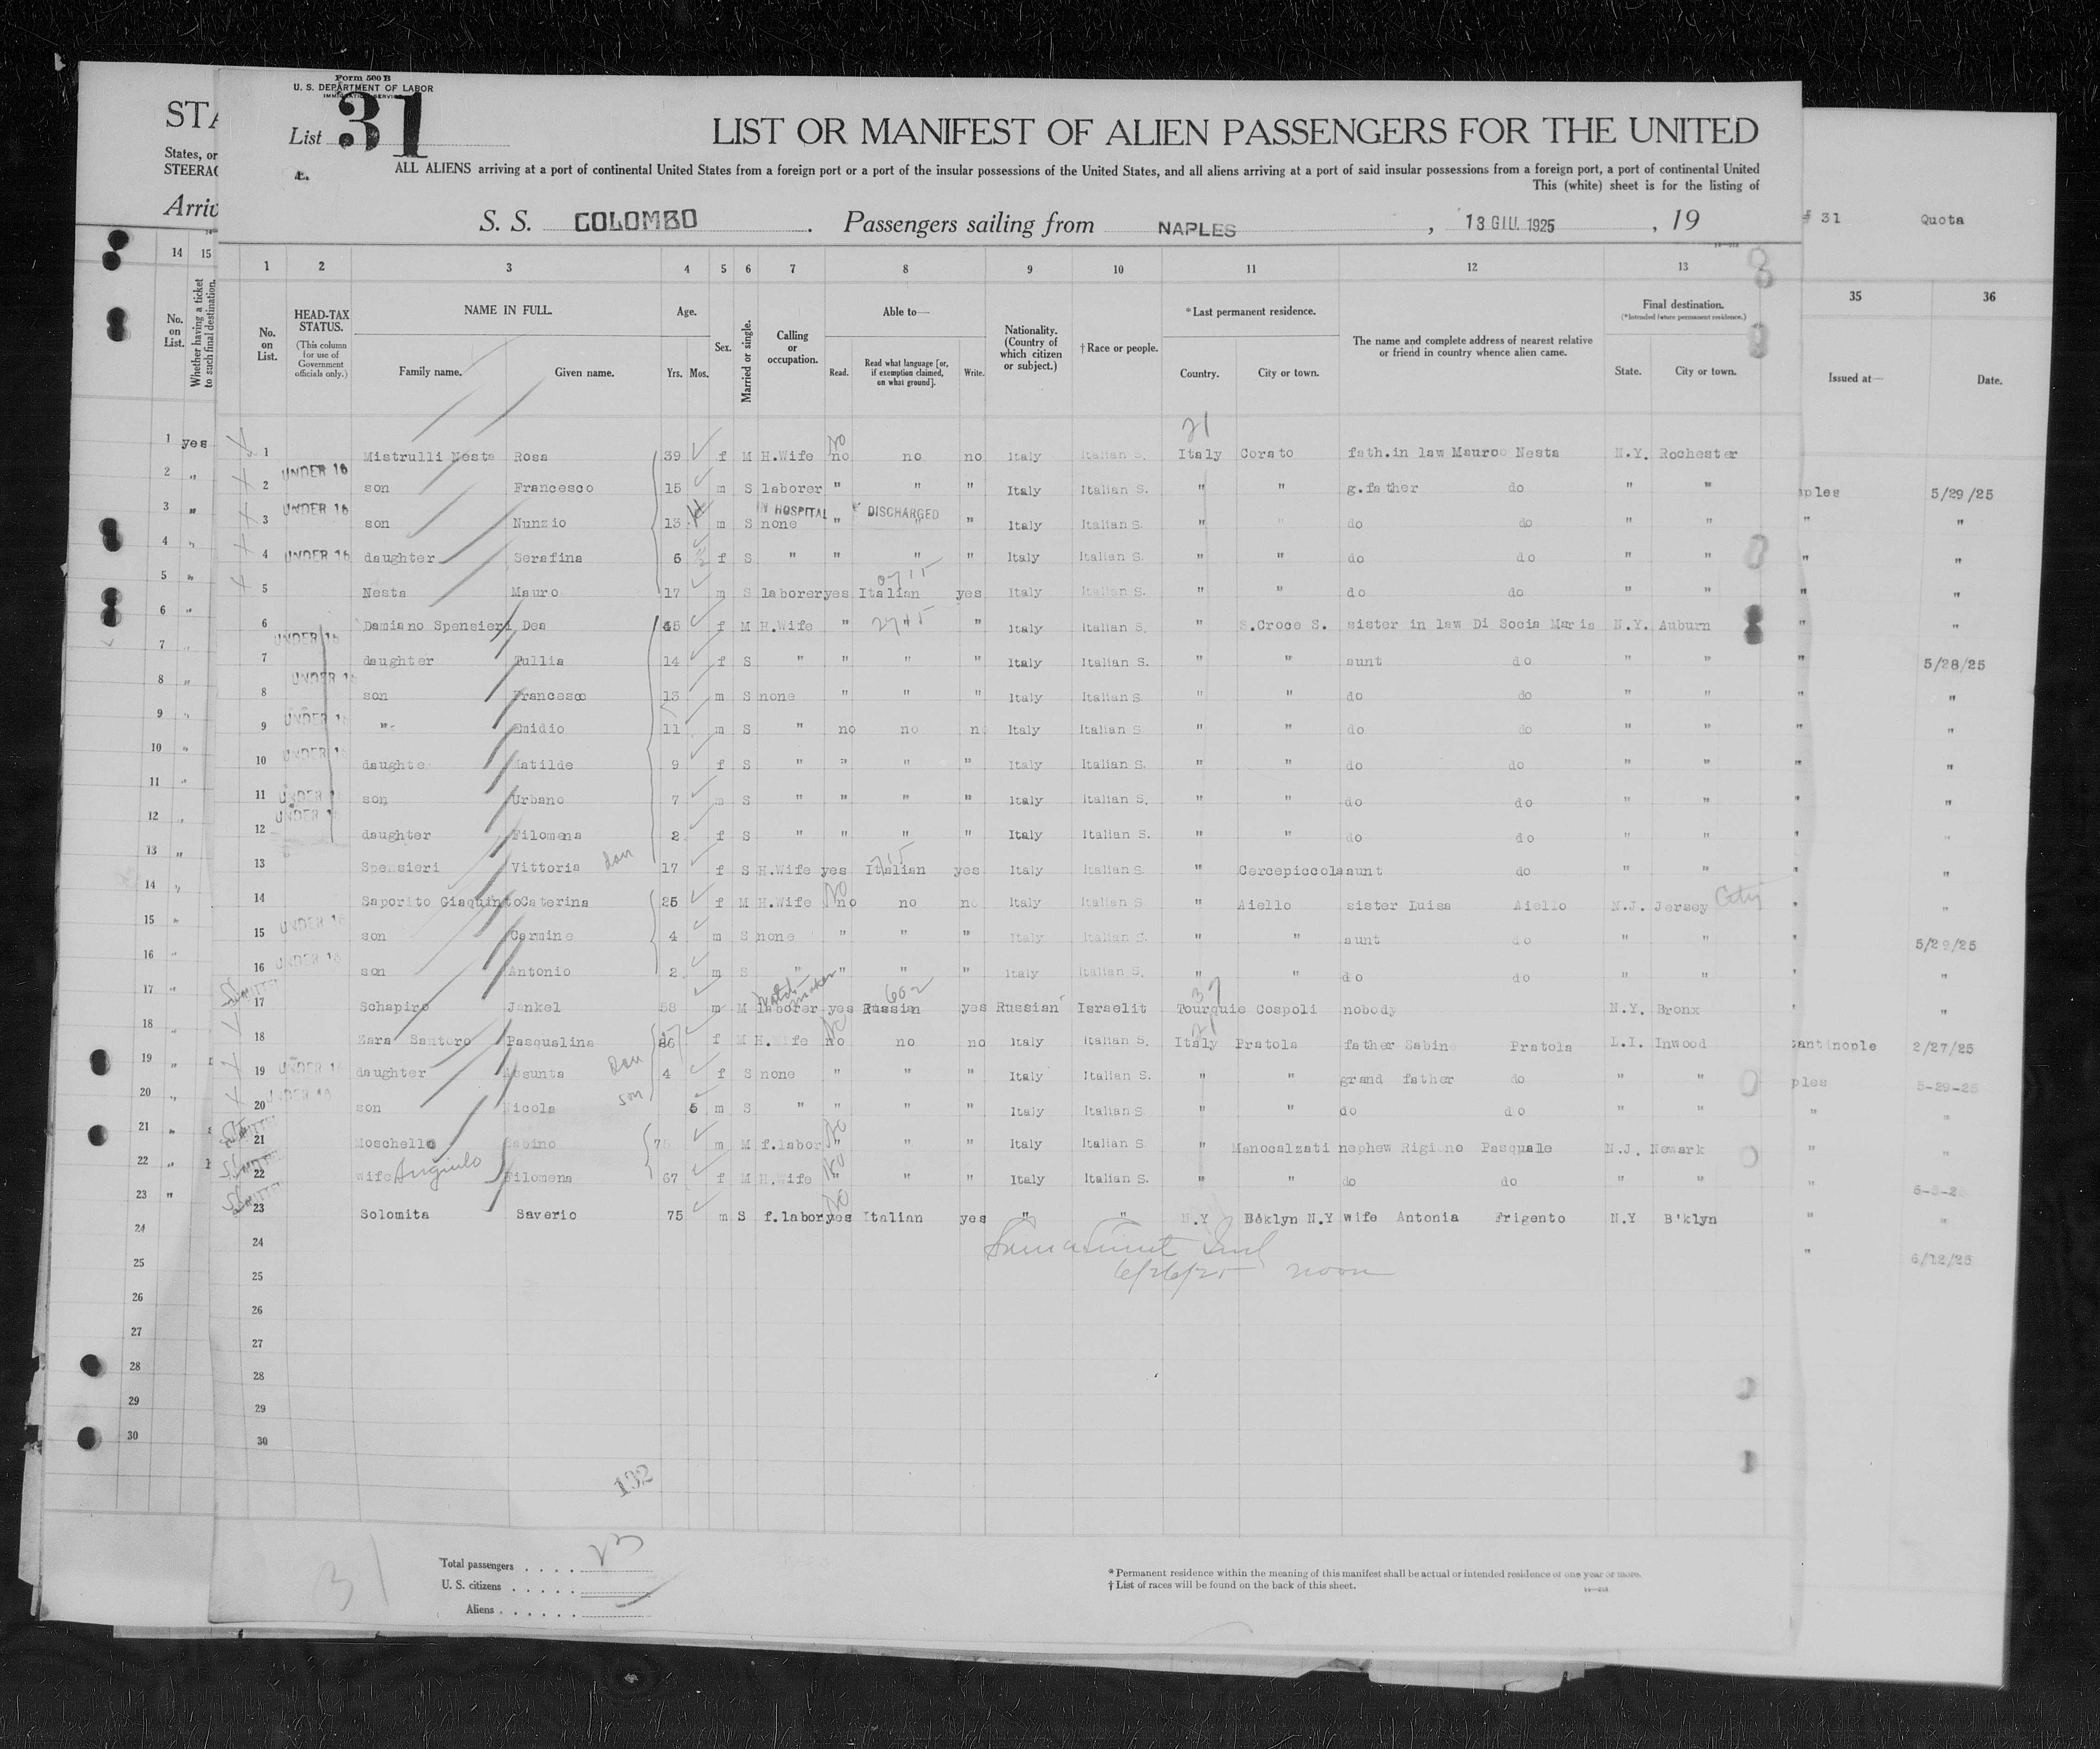 Form 500 B
U. S. DEPARTMENT OF LABOR
IMMIGRATION SERVICE
List 31
LIST OR MANIFEST OF ALIEN PASSENGERS FOR THE UNITED
ALL ALIENS arriving at a port of continental United States from a foreign port or a port of the insular possessions of the United States, and all aliens arriving at a port of said insular possessions from a foreign port, a port of continental United
This (white) sheet is for the listing of
S. S. COLOMBO . Passengers sailing from NAPLES , 13 GIU. 1925 , 19
STA
States, or
STEERAG
Arriv
# 31 Quota
14 15
1 2 3 4 5 6 7 8 9 10 11 12 13
35 36
No. on List.
Whether having a ticket to such final destination.
No. on List.
HEAD-TAX STATUS. (This column for use of Government officials only.)
NAME IN FULL.
Family name. Given name.
Age. Yrs. Mos.
Sex.
Married or single.
Calling or occupation.
Able to— Read. Read what language [or, if exemption claimed, on what ground]. Write.
Nationality. (Country of which citizen or subject.)
† Race or people.
* Last permanent residence. Country. City or town.
The name and complete address of nearest relative or friend in country whence alien came.
Final destination. (* Intended future permanent residence.) State. City or town.
Issued at— Date.
21
1 yes
1 Mistrulli Nesta Rosa 39 f M H.Wife no no no Italy Italian S. Italy Corato fath.in law Mauro Nesta N.Y. Rochester
2 UNDER 16 son Francesco 15 m S laborer " " " Italy Italian S. " " g.father do " " ples 5/29/25
IN HOSPITAL DISCHARGED
3 UNDER 16 son Nunzio 13 m S none " " " Italy Italian S. " " do do " " " "
4 UNDER 16 daughter Serafina 6 f S " " " " Italy Italian S. " " do do " " " "
5 Nesta Mauro 17 m S laborer yes Italian yes Italy Italian S. " " do do " " " "
6 Damiano Spensieri Dea 45 f M H.Wife " " Italy Italian S. " S.Croce S. sister in law Di Socia Maria N.Y. Auburn " "
7 UNDER 16 daughter Tullia 14 f S " " " " Italy Italian S. " " aunt do " " " 5/28/25
8 UNDER 16 son Francesco 13 m S none " " " Italy Italian S. " " do do " " " "
9 UNDER 16 " Emidio 11 m S " no no n Italy Italian S. " " do do " " " "
10 UNDER 16 daughte Matilde 9 f S " " " " Italy Italian S. " " do do " " " "
11 UNDER 16 son Urbano 7 m S " " " " Italy Italian S. " " do do " " " "
12 UNDER 16 daughter Filomena 2 f S " " " " Italy Italian S. " " do do " " "
13 Spensieri Vittoria 17 f S H.Wife yes Italian yes Italy Italian S. " Cercepiccola aunt do " " "
14 Saporito Giaquinto Caterina 25 f M H.Wife no no no Italy Italian S. " Aiello sister Luisa Aiello N.J. Jersey City " "
15 UNDER 16 son Carmine 4 m S none " " " Italy Italian S. " " aunt do " " " 5/29/25
16 UNDER 16 son Antonio 2 m S " " " " Italy Italian S. " " do do " " " "
Watch maker
17 Schapiro Jankel 58 m M laborer yes Russian yes Russian Israelit Tourquie Cospoli nobody N.Y. Bronx "
21
18 Zara Santoro Pasqualina 26 f M H.Wife no no no Italy Italian S. Italy Pratola father Sabin Pratola L.I. Inwood antinople 2/27/25
19 UNDER 16 daughter Assunta 4 f S none " " " Italy Italian S. " " grand father do " " ples 5-29-25
20 UNDER 16 son Nicola son 5 m S " " " " Italy Italian S " " do do " " " "
21 Moschella Sabino m M f.labor " " " Italy Italian S. " Manocalzati nephew Rigieno Pasquale N.J. Newark " "
22 wife Angiulo Filomena 67 f M H.Wife " " " Italy Italian S. " " do do " " "
23 Solomita Saverio 75 m S f.labor yes Italian yes " " N.Y B'klyn N.Y wife Antonia Frigento N.Y B'klyn " "
24
6/26/25 noon
" 6/12/25
25
26
27
28
29
30
132
31
Total passengers . . . . 23
U. S. citizens . . . . .
Aliens . . . . . .
* Permanent residence within the meaning of this manifest shall be actual or intended residence of one year or more.
† List of races will be found on the back of this sheet.